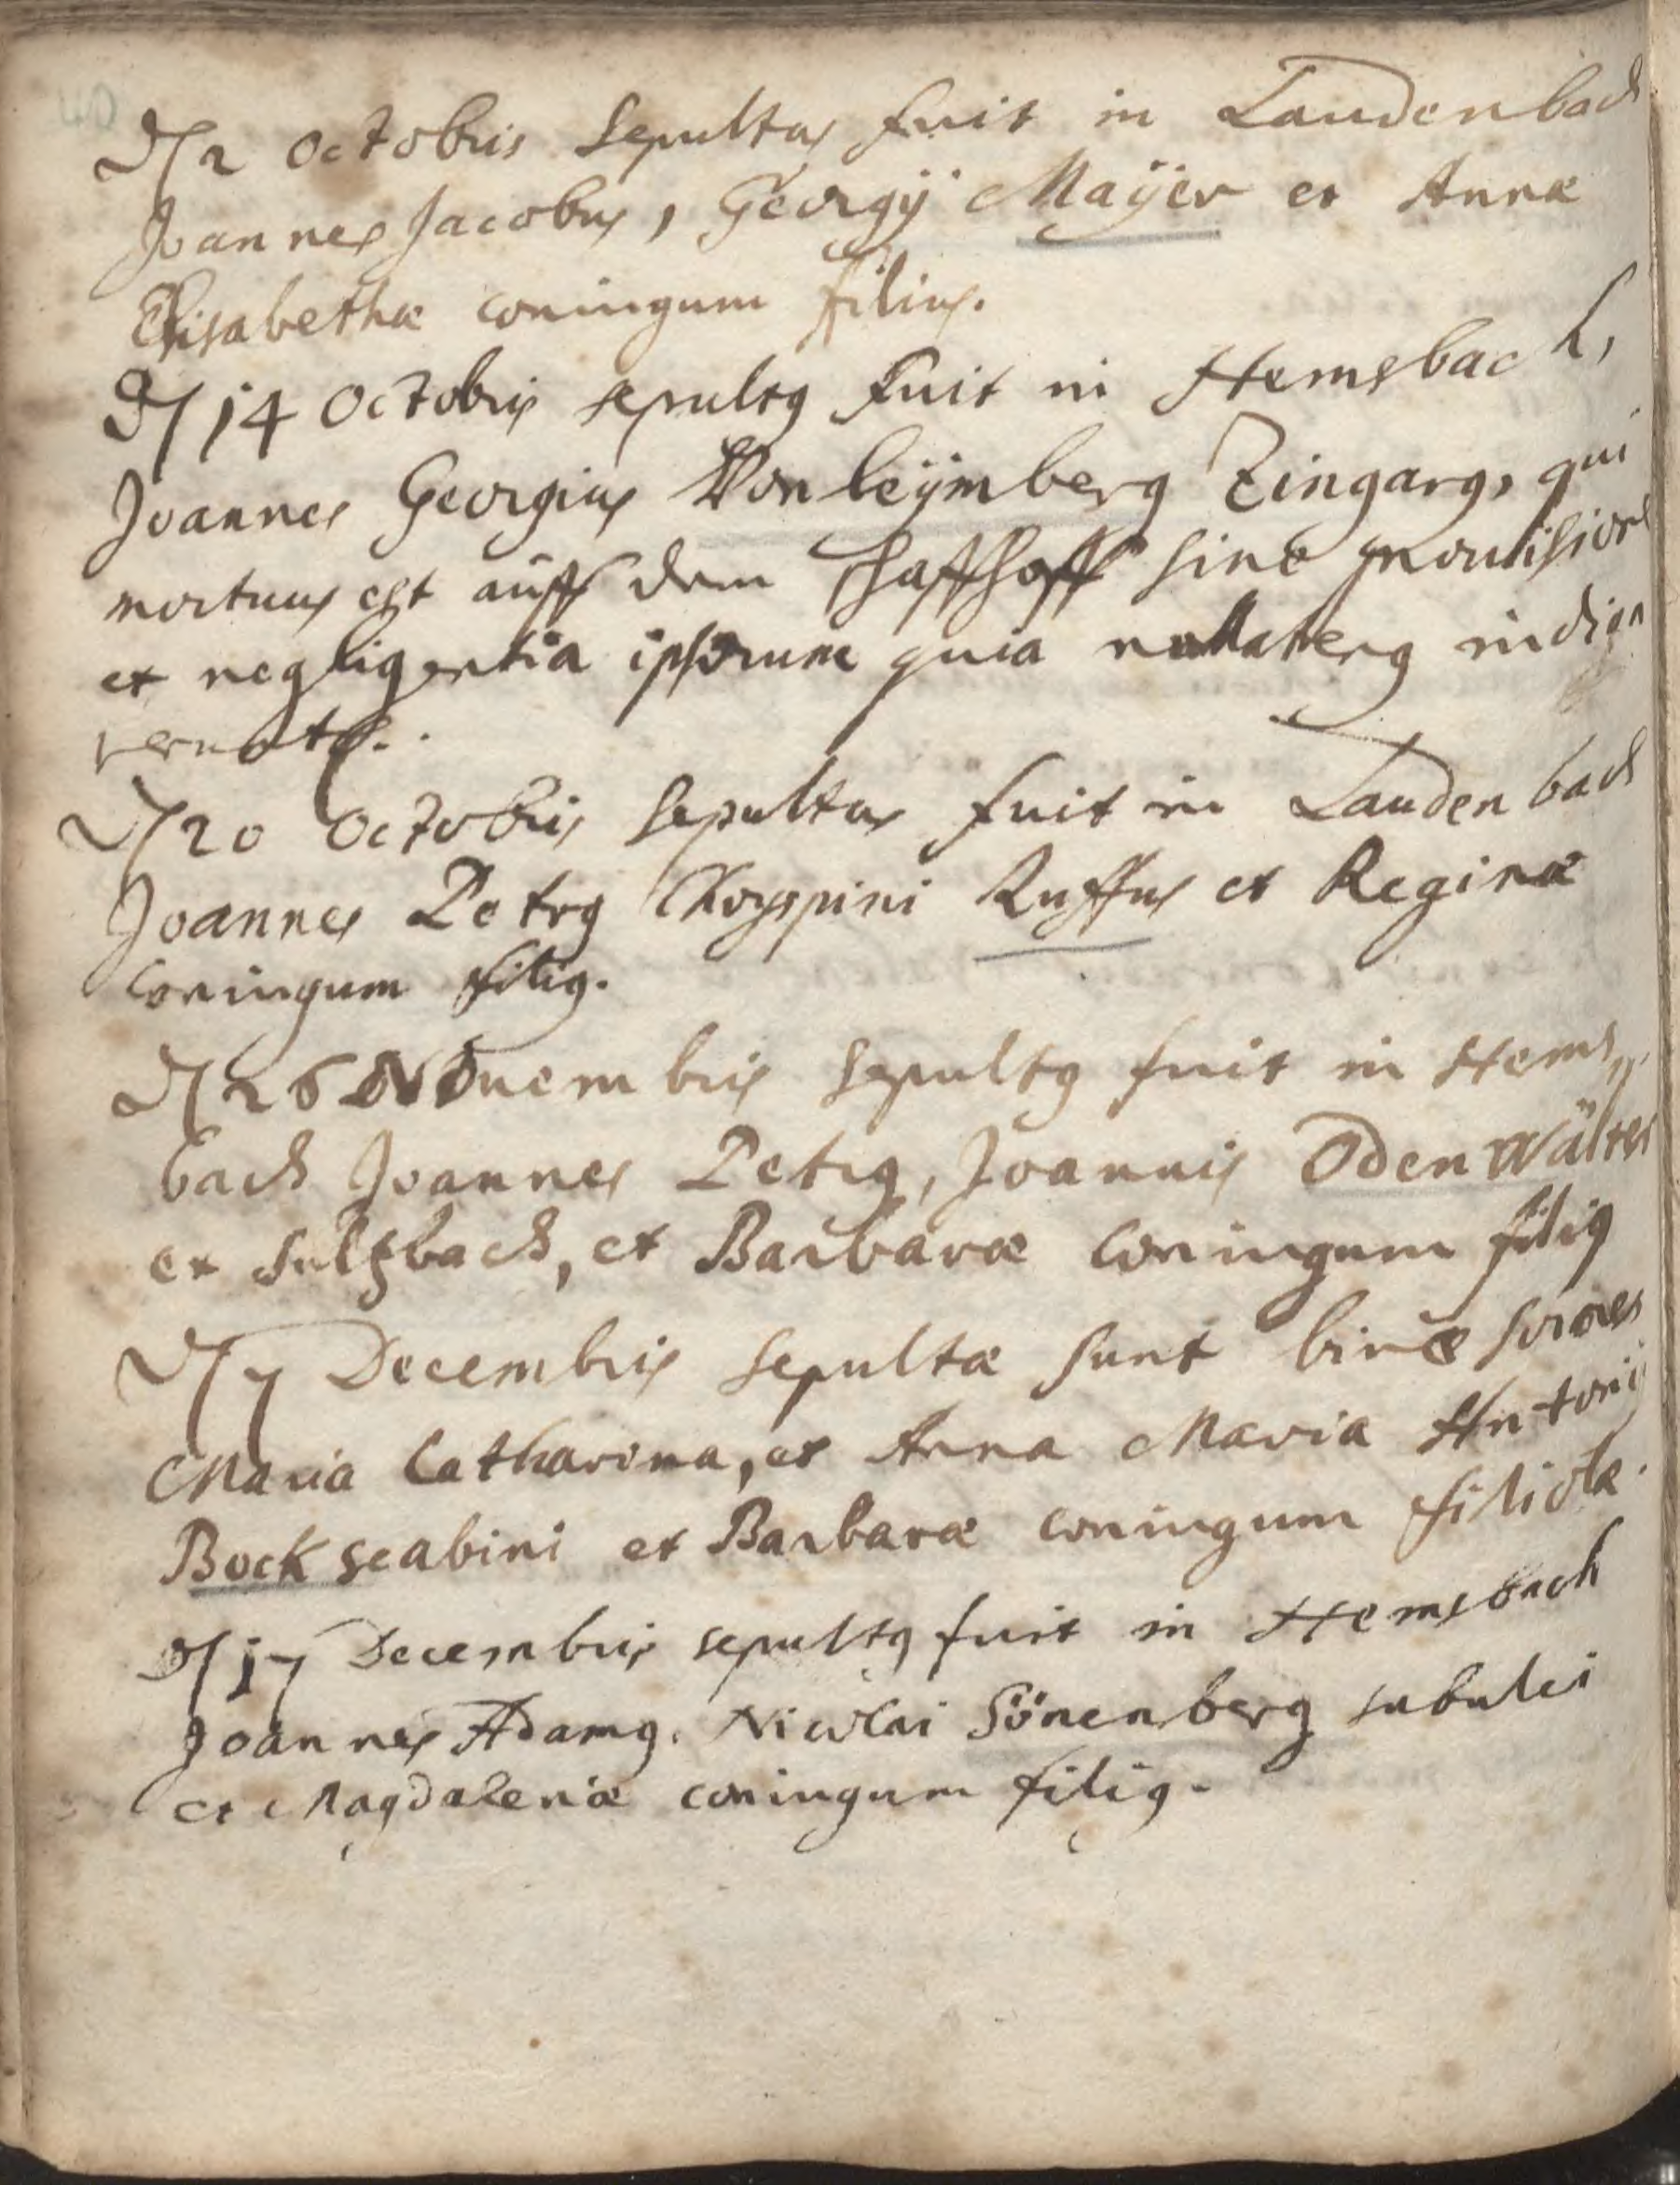 40
d 2 octobris Sepultus fuit in Laudenbach
Joannes Jacobus, Georgij Mayer et Annæ
Elisabethæ coniugum filius.
d 14 octobris sepultq fuit in Hemsbach,
Joannes Georgius Von leijmberg Zingarq, qui
mortuus est auff dem schaffhoff sine prouisione
et negligentia ipsorum quia
d 20 octobris sepultus fuit in Laudenbach
Joannes Petrq Chryspini Ruffus et Reginæ
coniugum filiq.
d 26 Nouembris sepultq fuit in Hems„
bach Joannes Petrq, Joannis Odenwälter
ex Sultzbach, et Barbaræ coniugum filiq
d 7 Decembris sepultæ sunt binæ sorores
Maria Catharina, et Anna Maria Antonij
Bock scabini et Barbaræ coniugum filiolæ.
d 17 Decembris sepultq fuit in Hemsbach
Joannes Adamq. Nicolai Sönenberg subulci
et Magdalenæ coniugum filiq.